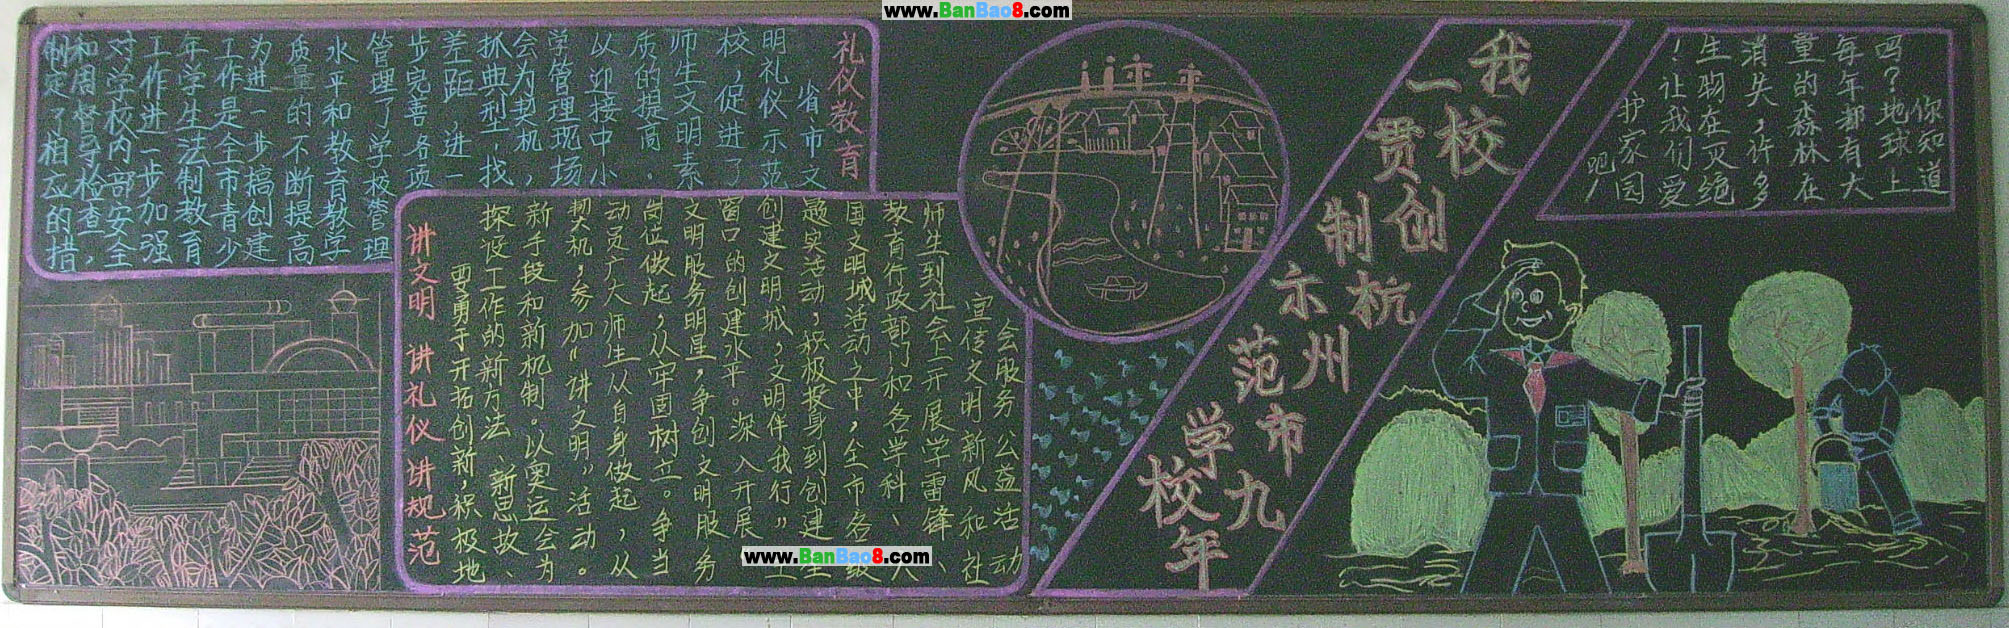 www.BanBao8.com
礼仪教育
省市文
明礼仪示范
校,促进了
师生文明素
质的提高。
以迎接中小
学管理现场
会为契机,
抓典型,找
差距,进一
步完善各项
管理了学校管理
水平和教育教学
质量的不断提高
为进一步搞创建
工作是全市青少
年学生法制教育
工作进一步加强
对学校内部安全
和周督导检查,
制定了相应的措
讲文明 讲礼仪 讲规范
要勇于开拓创新,积极地
探设工作的新方法、新思故、
新手段和新机制。以奥运会为
契机,参加“讲文明”活动。
动员广大师生从自身做起,从
岗位做起,从牢固树立。争当
文明服务明星,争创文明服务
窗口的创建水平。深入开展
创建文明城,文明伴我行”
题实活动,积极投身到创建
国文明城活动之中,全市各级
教育行政部门和各学科、人
师生到社会上开展学雷锋、
宣传文明新风和社
会服务公益活动
www.BanBao8.com
我校创杭州市九年
一贯制示范学校
你知道
吗?地球上
每年都有大
量的森林在
消失,许多
生物在灭绝
!让我们爱
护家园
吧!